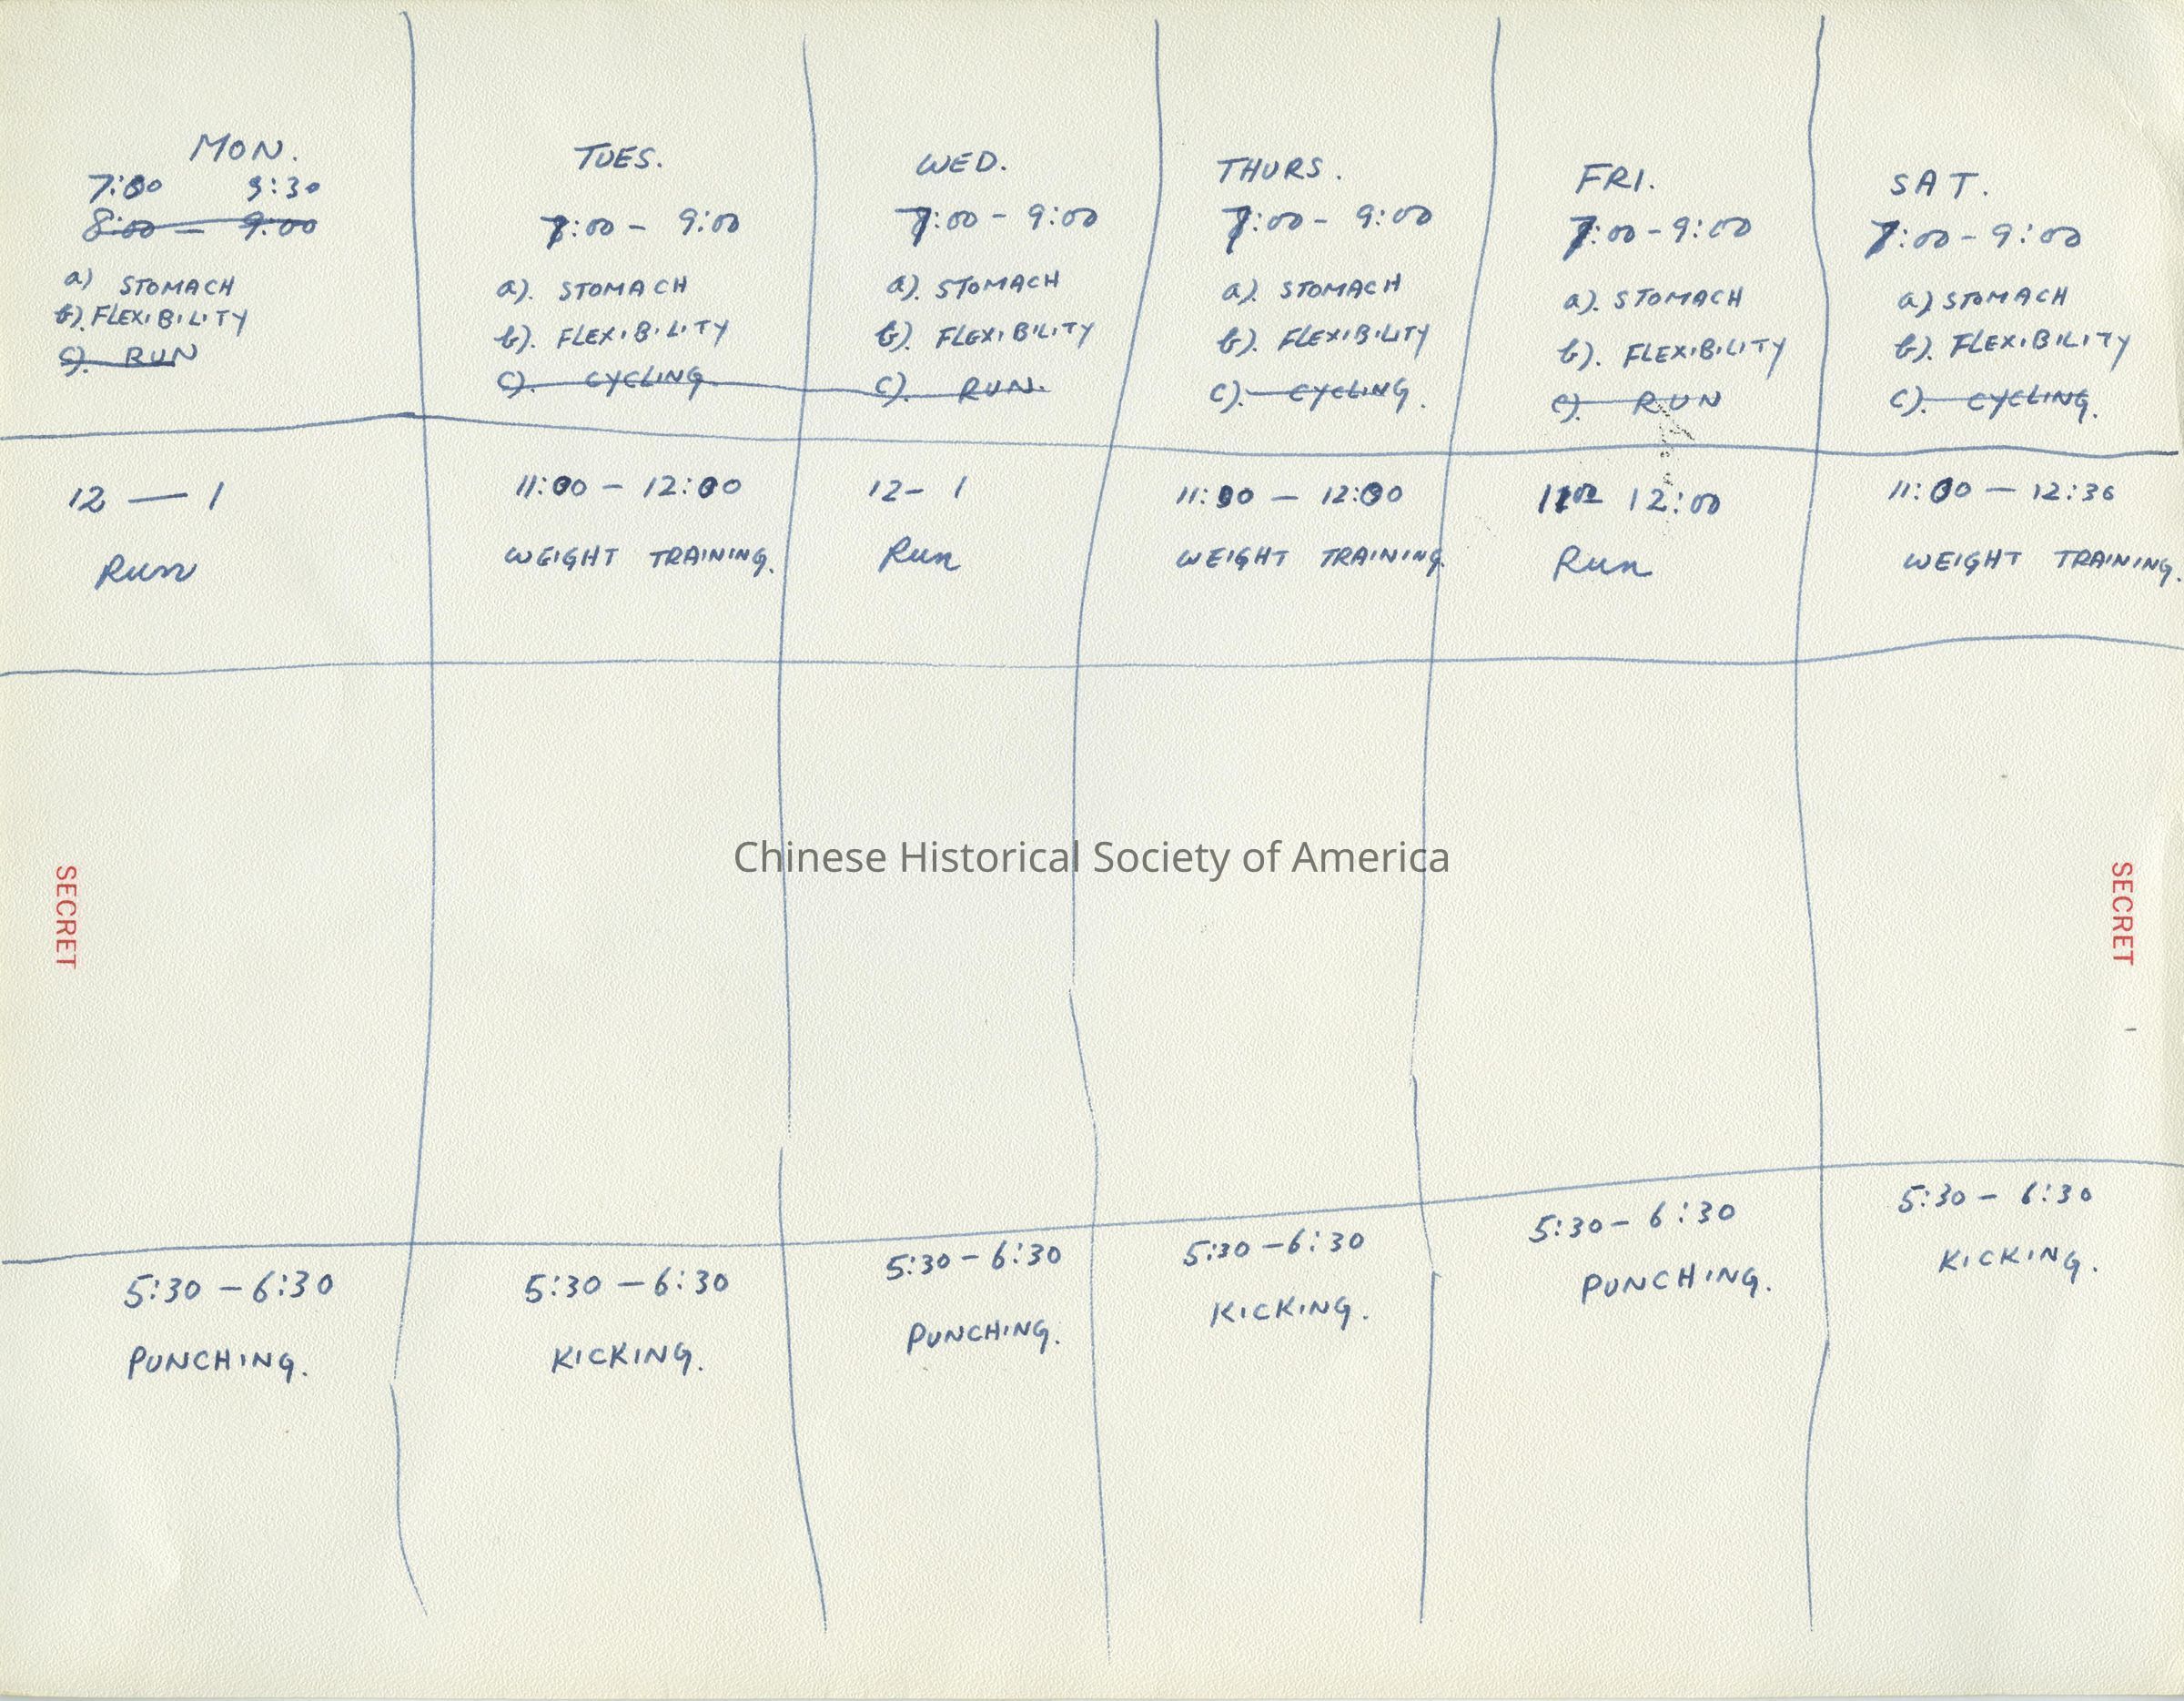 MON.
7:00 9:30
8:00 — 9:00
a) STOMACH
b). FLEXIBILITY
c). RUN
12 — 1
Run
5:30 - 6:30
PUNCHING.
TUES.
7:00 - 9:00
a). STOMACH
b). FLEXIBILITY
c). CYCLING
11:00 - 12:00
WEIGHT TRAINING.
5:30 - 6:30
KICKING.
WED.
7:00 - 9:00
a). STOMACH
b). FLEXIBILITY
c). RUN.
12 - 1
Run
5:30 - 6:30
PUNCHING.
THURS.
7:00 - 9:00
a). STOMACH
b). FLEXIBILITY
c). CYCLING.
11:00 - 12:00
WEIGHT TRAINING.
5:30 - 6:30
KICKING.
FRI.
7:00 - 9:00
a). STOMACH
b). FLEXIBILITY
c). RUN
12:00
Run
5:30 - 6:30
PUNCHING.
SAT.
7:00 - 9:00
a) STOMACH
b). FLEXIBILITY
c). CYCLING.
11:00 - 12:30
WEIGHT TRAINING.
5:30 - 6:30
KICKING.
SECRET
Chinese Historical Society of America
SECRET